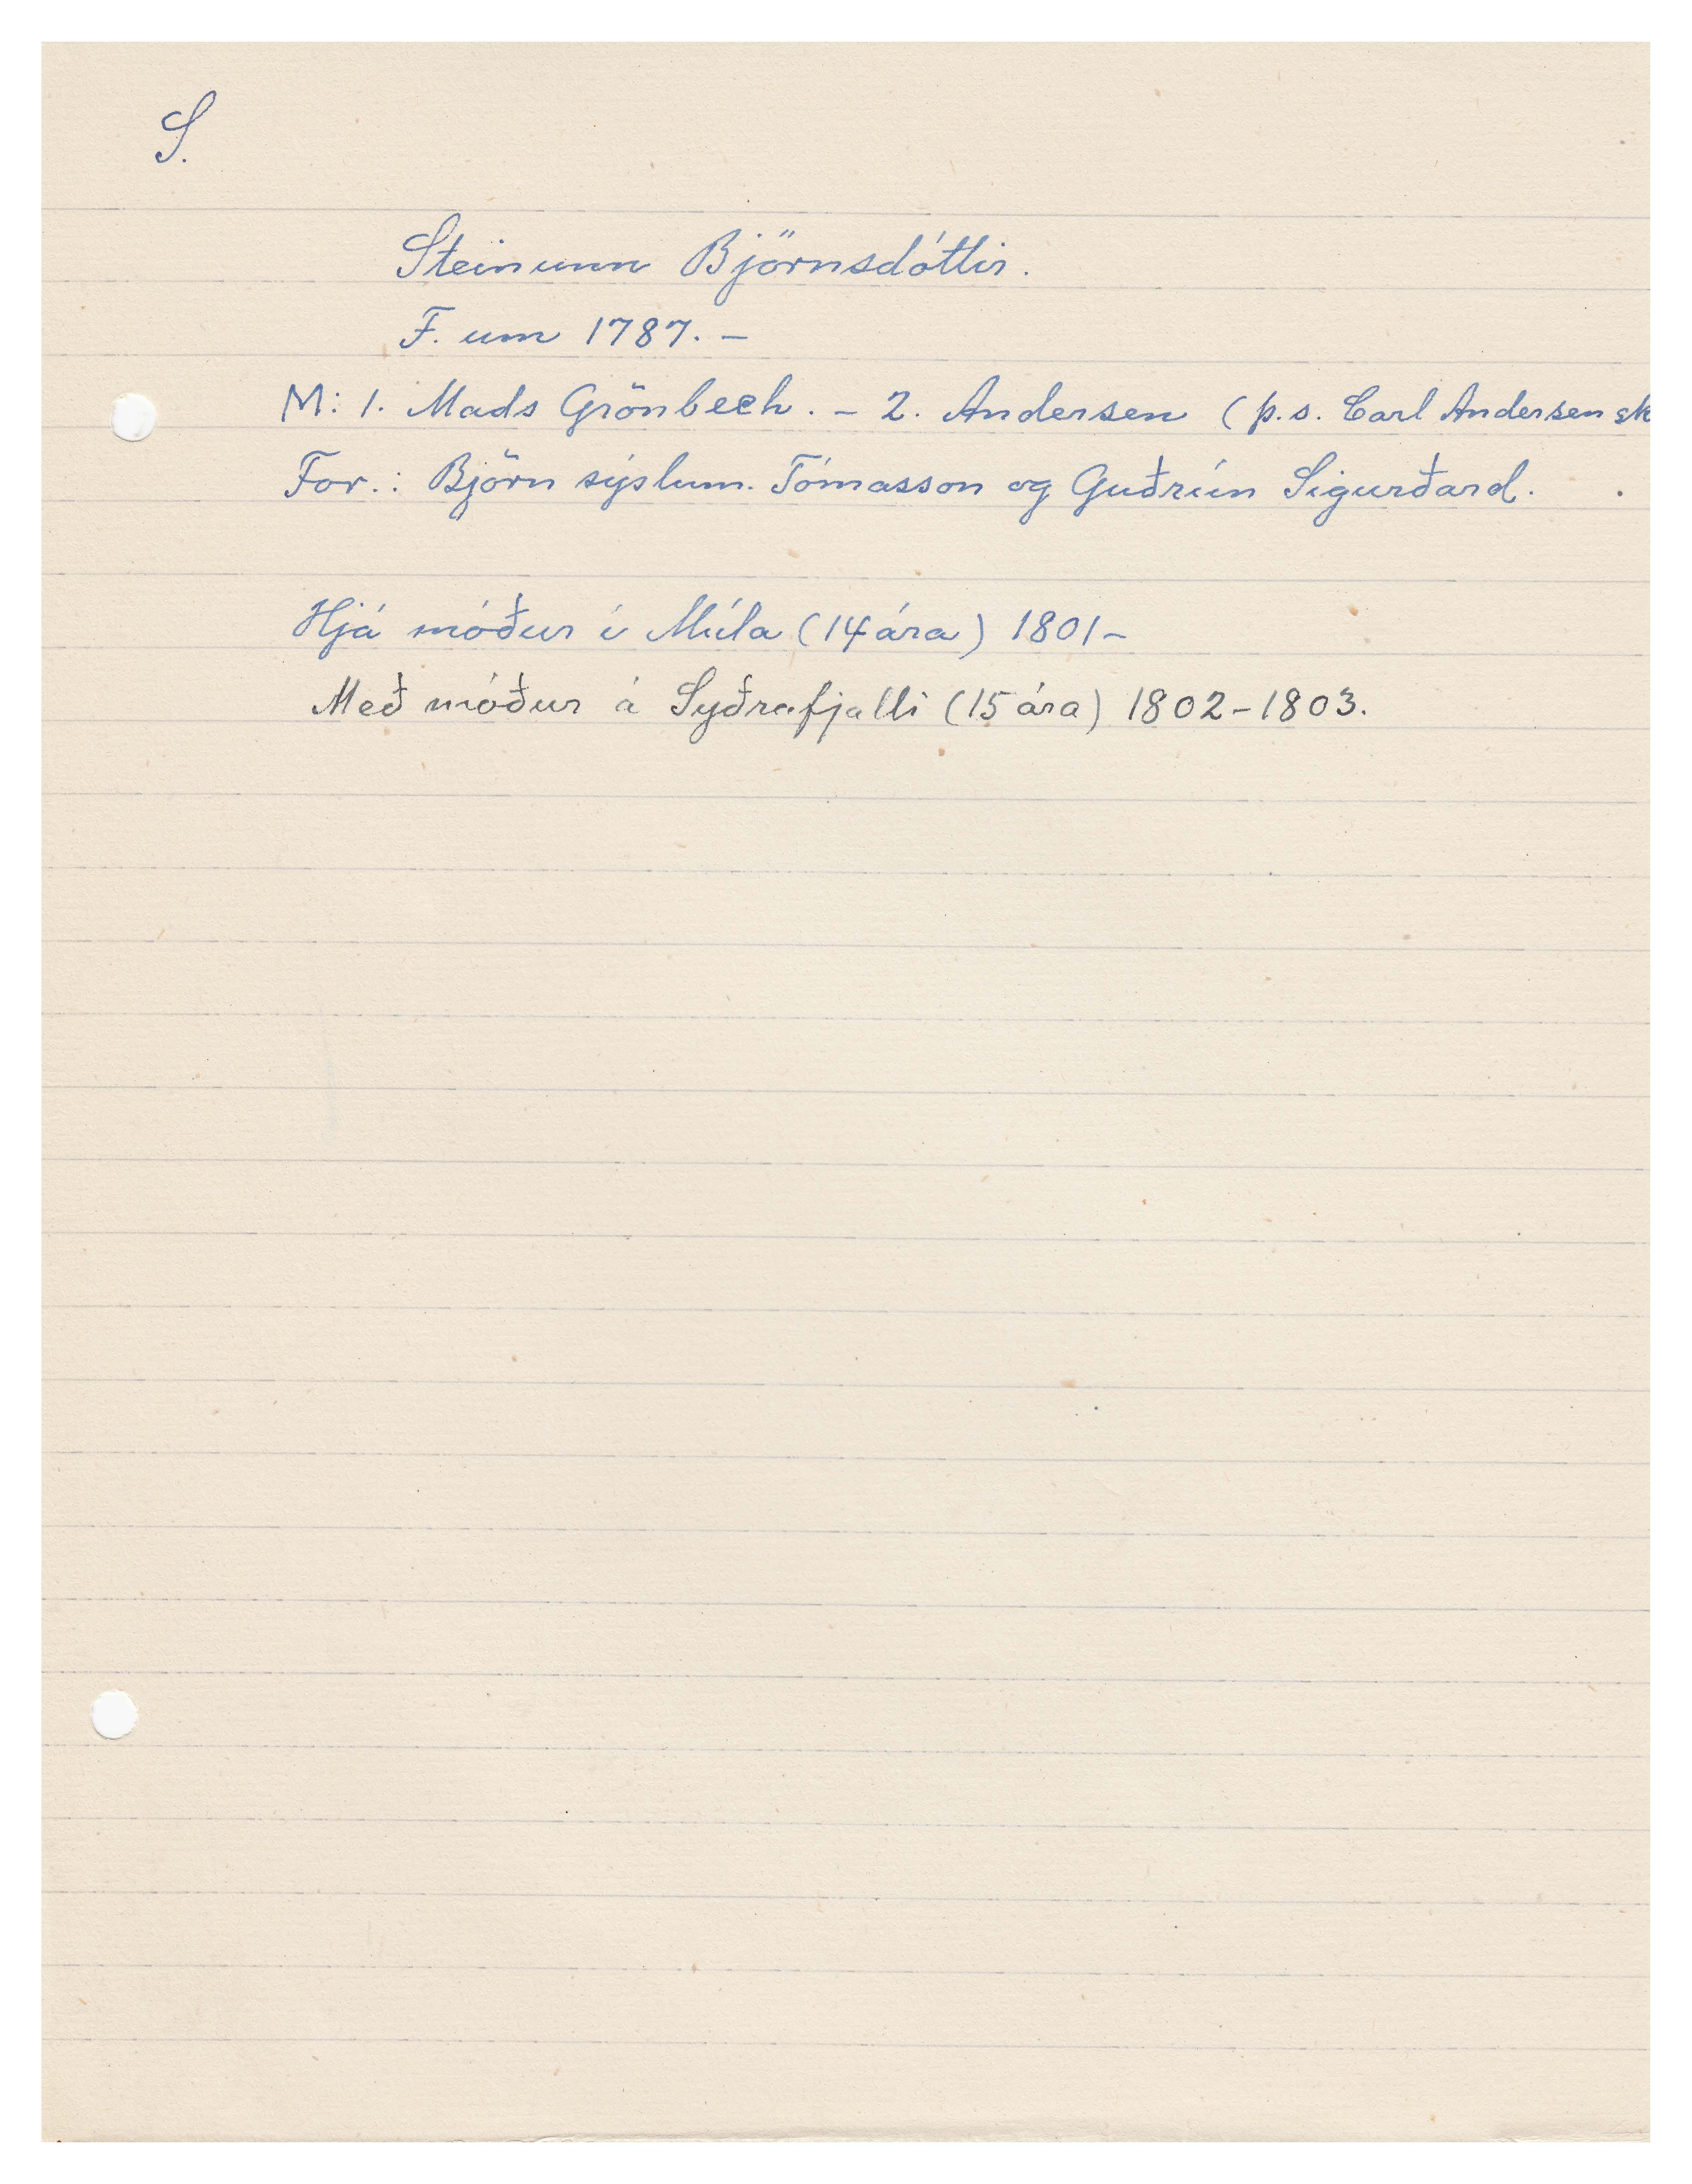 S.
Steinunn Björnsdóttir.
F. um 1787. –
M: 1. Mads Grönbech. – 2. Andersen (þ.s. Carl Andersen sk
For.: Björn sýslum. Tómasson og Guðrún Sigurðard.
Hjá móður í Múla (14 ára) 1801–
Með móður á Syðrafjalli (15 ára) 1802–1803.